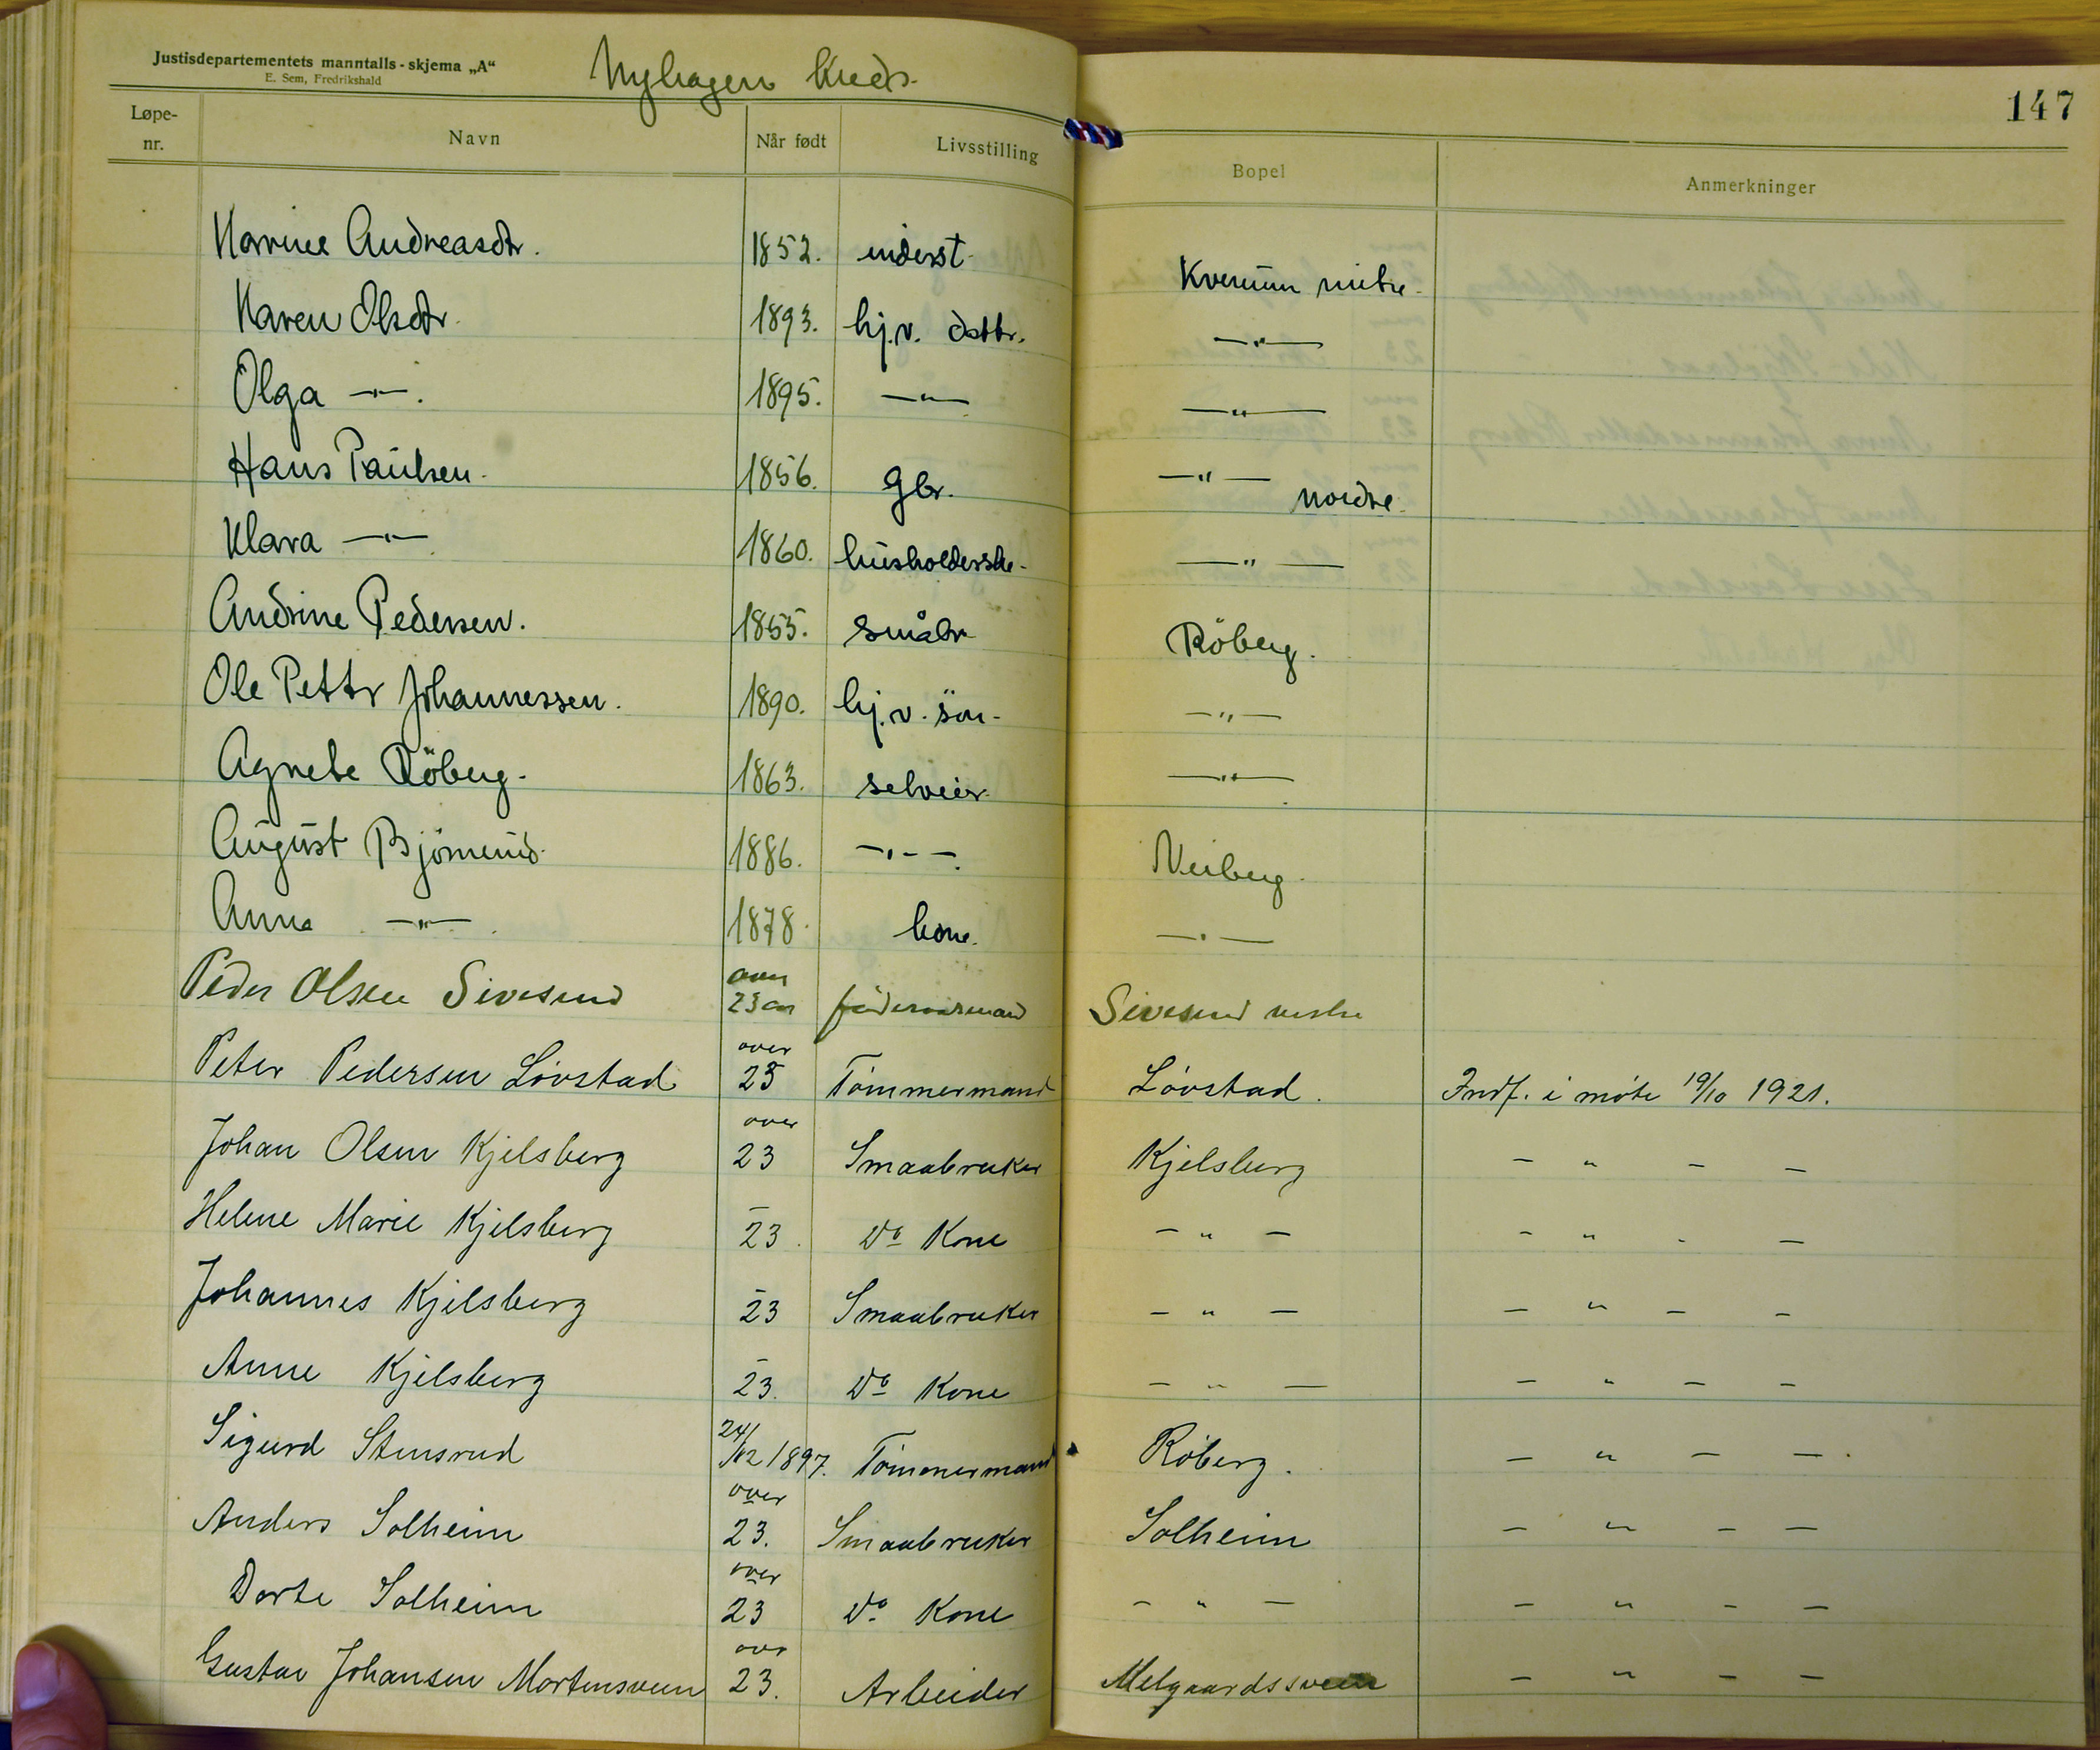 Justisdepartementets manntalls-skjema „A“
E. Sem, Fredrikshald
Nyhagen kreds.
147
Løpe-nr. Navn Når født Livsstilling Bopel Anmerkninger
Karine Andreasdtr. 1852. inderst Kverum nitre.
Karen Olsdtr. 1893. hj.v. dattr. —"—
Olga —"—. 1895. —"— —"—
Hans Paulsen. 1856. gbr. —"— nordre.
Klara —"— 1860. husholderske. —"—
Andrine Pedersen. 1855. småbr. Röberg.
Ole Pettr Johannessen. 1890. hj.v. sön. —"—
Agnete Röberg. 1863. selveier. —"—
August Björnerud. 1886. —"—. Neiberg.
Anna —"—. 1878. kone. —"—
Peder Olsen Sivesind over 23 aar föderaadsmand Sivesind vestre
Peter Pedersen Lövstad over 23 Tömmermand Lövstad. Indf. i möte 19/10 1921.
Johan Olsen Kjelsberg over 23 Smaabruker Kjelsberg — " — —
Helene Marie Kjelsberg — 23. Do Kone — " — — " — —
Johannes Kjelsberg — 23 Smaabruker — " — — " — —
Anne Kjelsberg — 23. Do Kone — " — — " — —
Sigurd Stensrud 24/12 1897. Tömmermand Röberg. — " — —.
Anders Solheim over 23. Smaabruker Solheim — " — —
Dorte Solheim over 23 Do Kone — " — — " — —
Gustav Johansen Mortensveen over 23. Arbeider Melgaardssveen — " — —